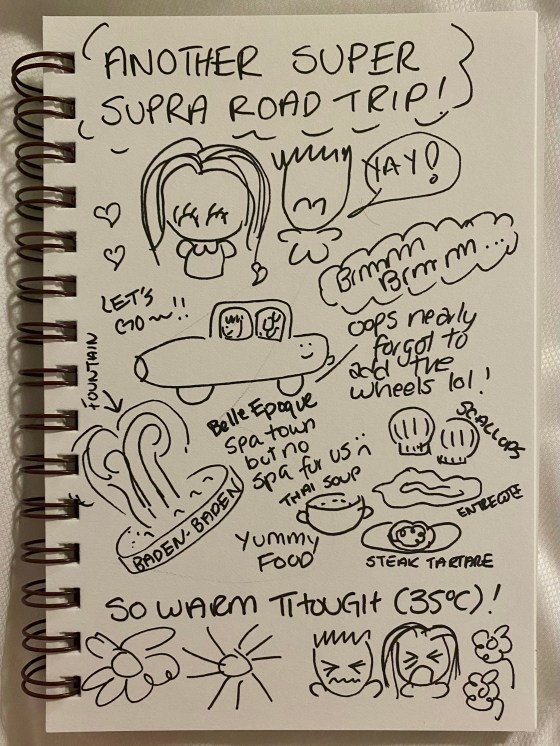 ANOTHER SUPER
SUPRA ROAD TRIP!
YAY!
Brmmm
Brm rm...
LET'S
GO~!!
oops nearly
forgot to
add the
wheels lol!
FOUNTAIN
Belle Epoque
spa town
but no
spa for us :(
BADEN-BADEN
SCALLOPS
THAI SOUP
ENTRECOTE
Yummy
FOOD
STEAK TARTARE
SO WARM THOUGH (35°C)!